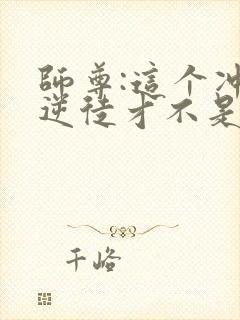 師尊:這个冲
逆徒才不是
千峈